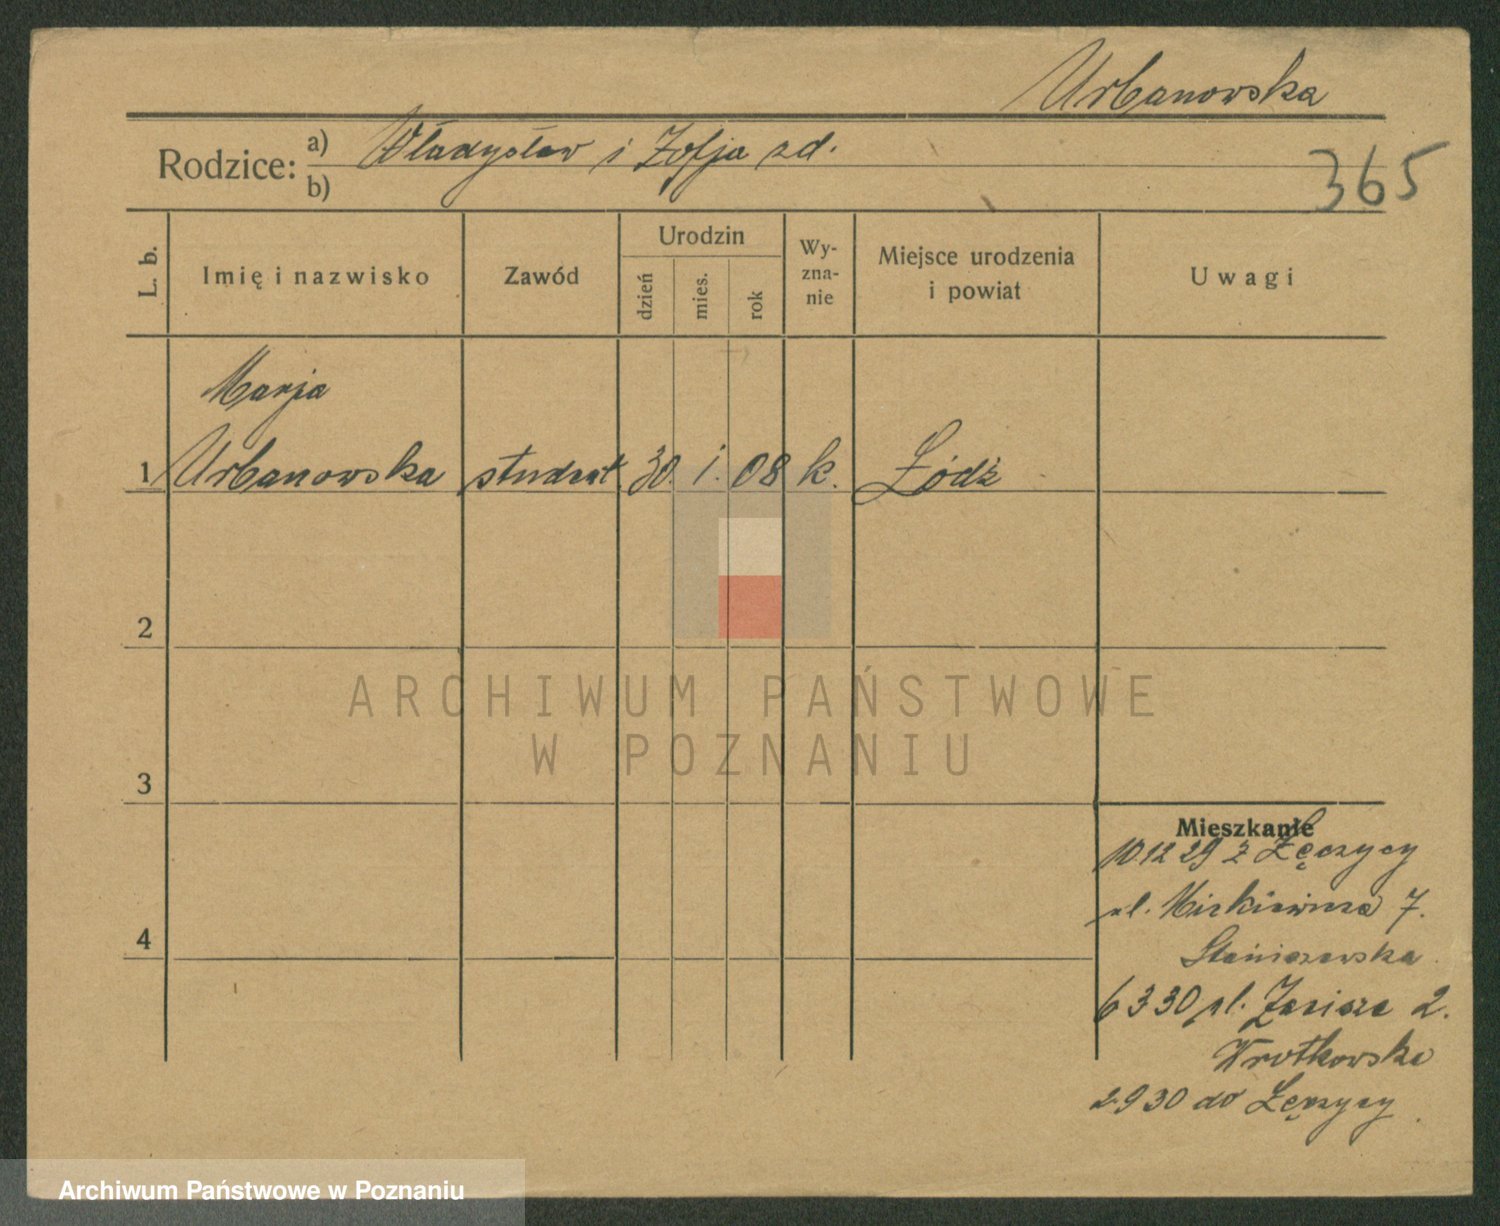 Urbanowska
Rodzice: a) Władysław i Zofja zd.
b)
365
L. b.
Imię i nazwisko
Zawód
Urodzin
dzień
mies.
rok
Wy-
zna-
nie
Miejsce urodzenia
i powiat
Uwagi
Marja
1 Urbanowska student 30. i. 08 k. Łódź
2
3
4
ARCHIWUM PAŃSTWOWE
W POZNANIU
Mieszkanie
10 12 29 z Łęczycy
pl. Mickiewicza 7.
Staniszewska
6 3 30 pl. Zacisze 2.
Wrotkowska
2 9 30 do Łęczycy
Archiwum Państwowe w Poznaniu